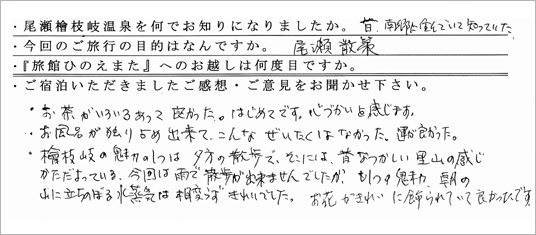 ・尾瀬檜枝岐温泉を何でお知りになりましたか。昔、南郷に住んでいて知っていた
・今回のご旅行の目的はなんですか。 尾瀬散策
・『旅館ひのえまた』へのお越しは何度目ですか。
・ご宿泊いただきましたご感想・ご意見をお聞かせ下さい。
・お茶がいろいろあって良かった。はじめてです。心づかいを感じます。
・お風呂が独りじめ出来て、こんなぜいたくはなかった。運が良かった。
・檜枝岐の魅力の1つは夕方の散歩で、そこには、昔なつかしい里山の感じ
がただよっている。今回は雨で散歩が出来ませんでしたが、もう1つの魅力、朝の
山に立ちのぼる水蒸気は相変らずきれいでした。お花がきれいに飾られていて良かったです